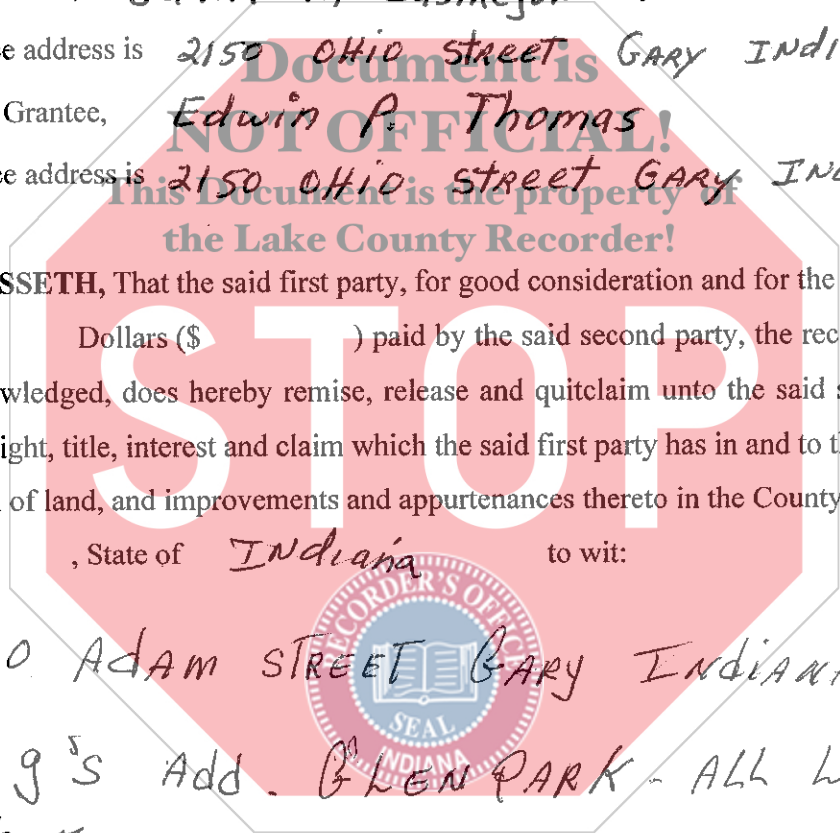 e address is 2150 OHio street GARY INdi
Document is
Grantee, Edwin P. Thomas
NOT OFFICIAL!
e address is 2150 OHio street GARY IND
This Document is the property of
the Lake County Recorder!
SSETH, That the said first party, for good consideration and for the
Dollars ($ ) paid by the said second party, the rec
wledged, does hereby remise, release and quitclaim unto the said s
ight, title, interest and claim which the said first party has in and to t
of land, and improvements and appurtenances thereto in the County
, State of INdiana to wit:
STOP
RECORDER'S OFFICE
O AdAM STREET GARY INdiAN
SEAL
INDIANA
g's Add. GLEN PARK - ALL L